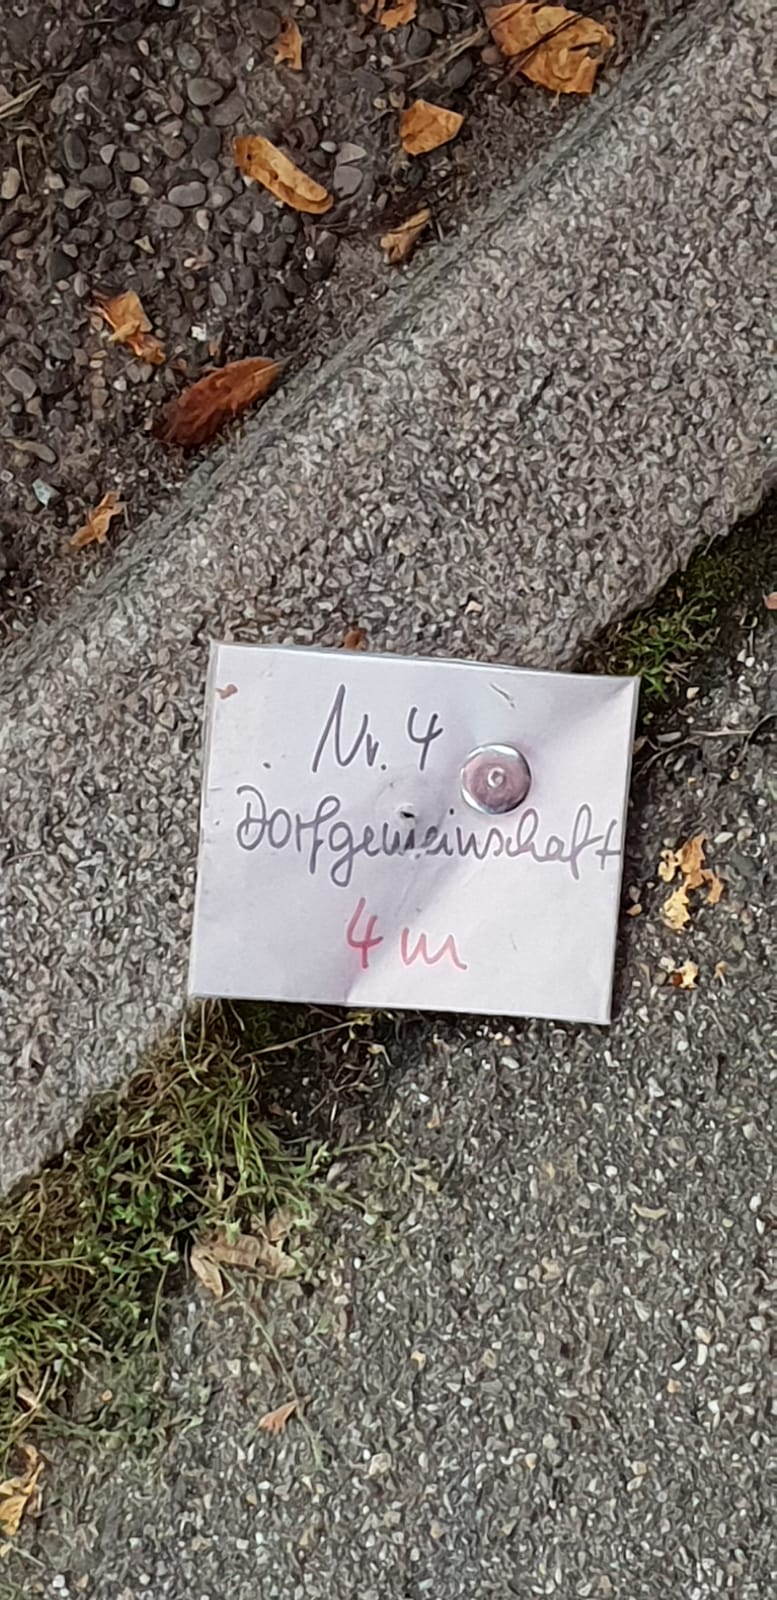 Nr. 4
Dorfgemeinschaft
4 m